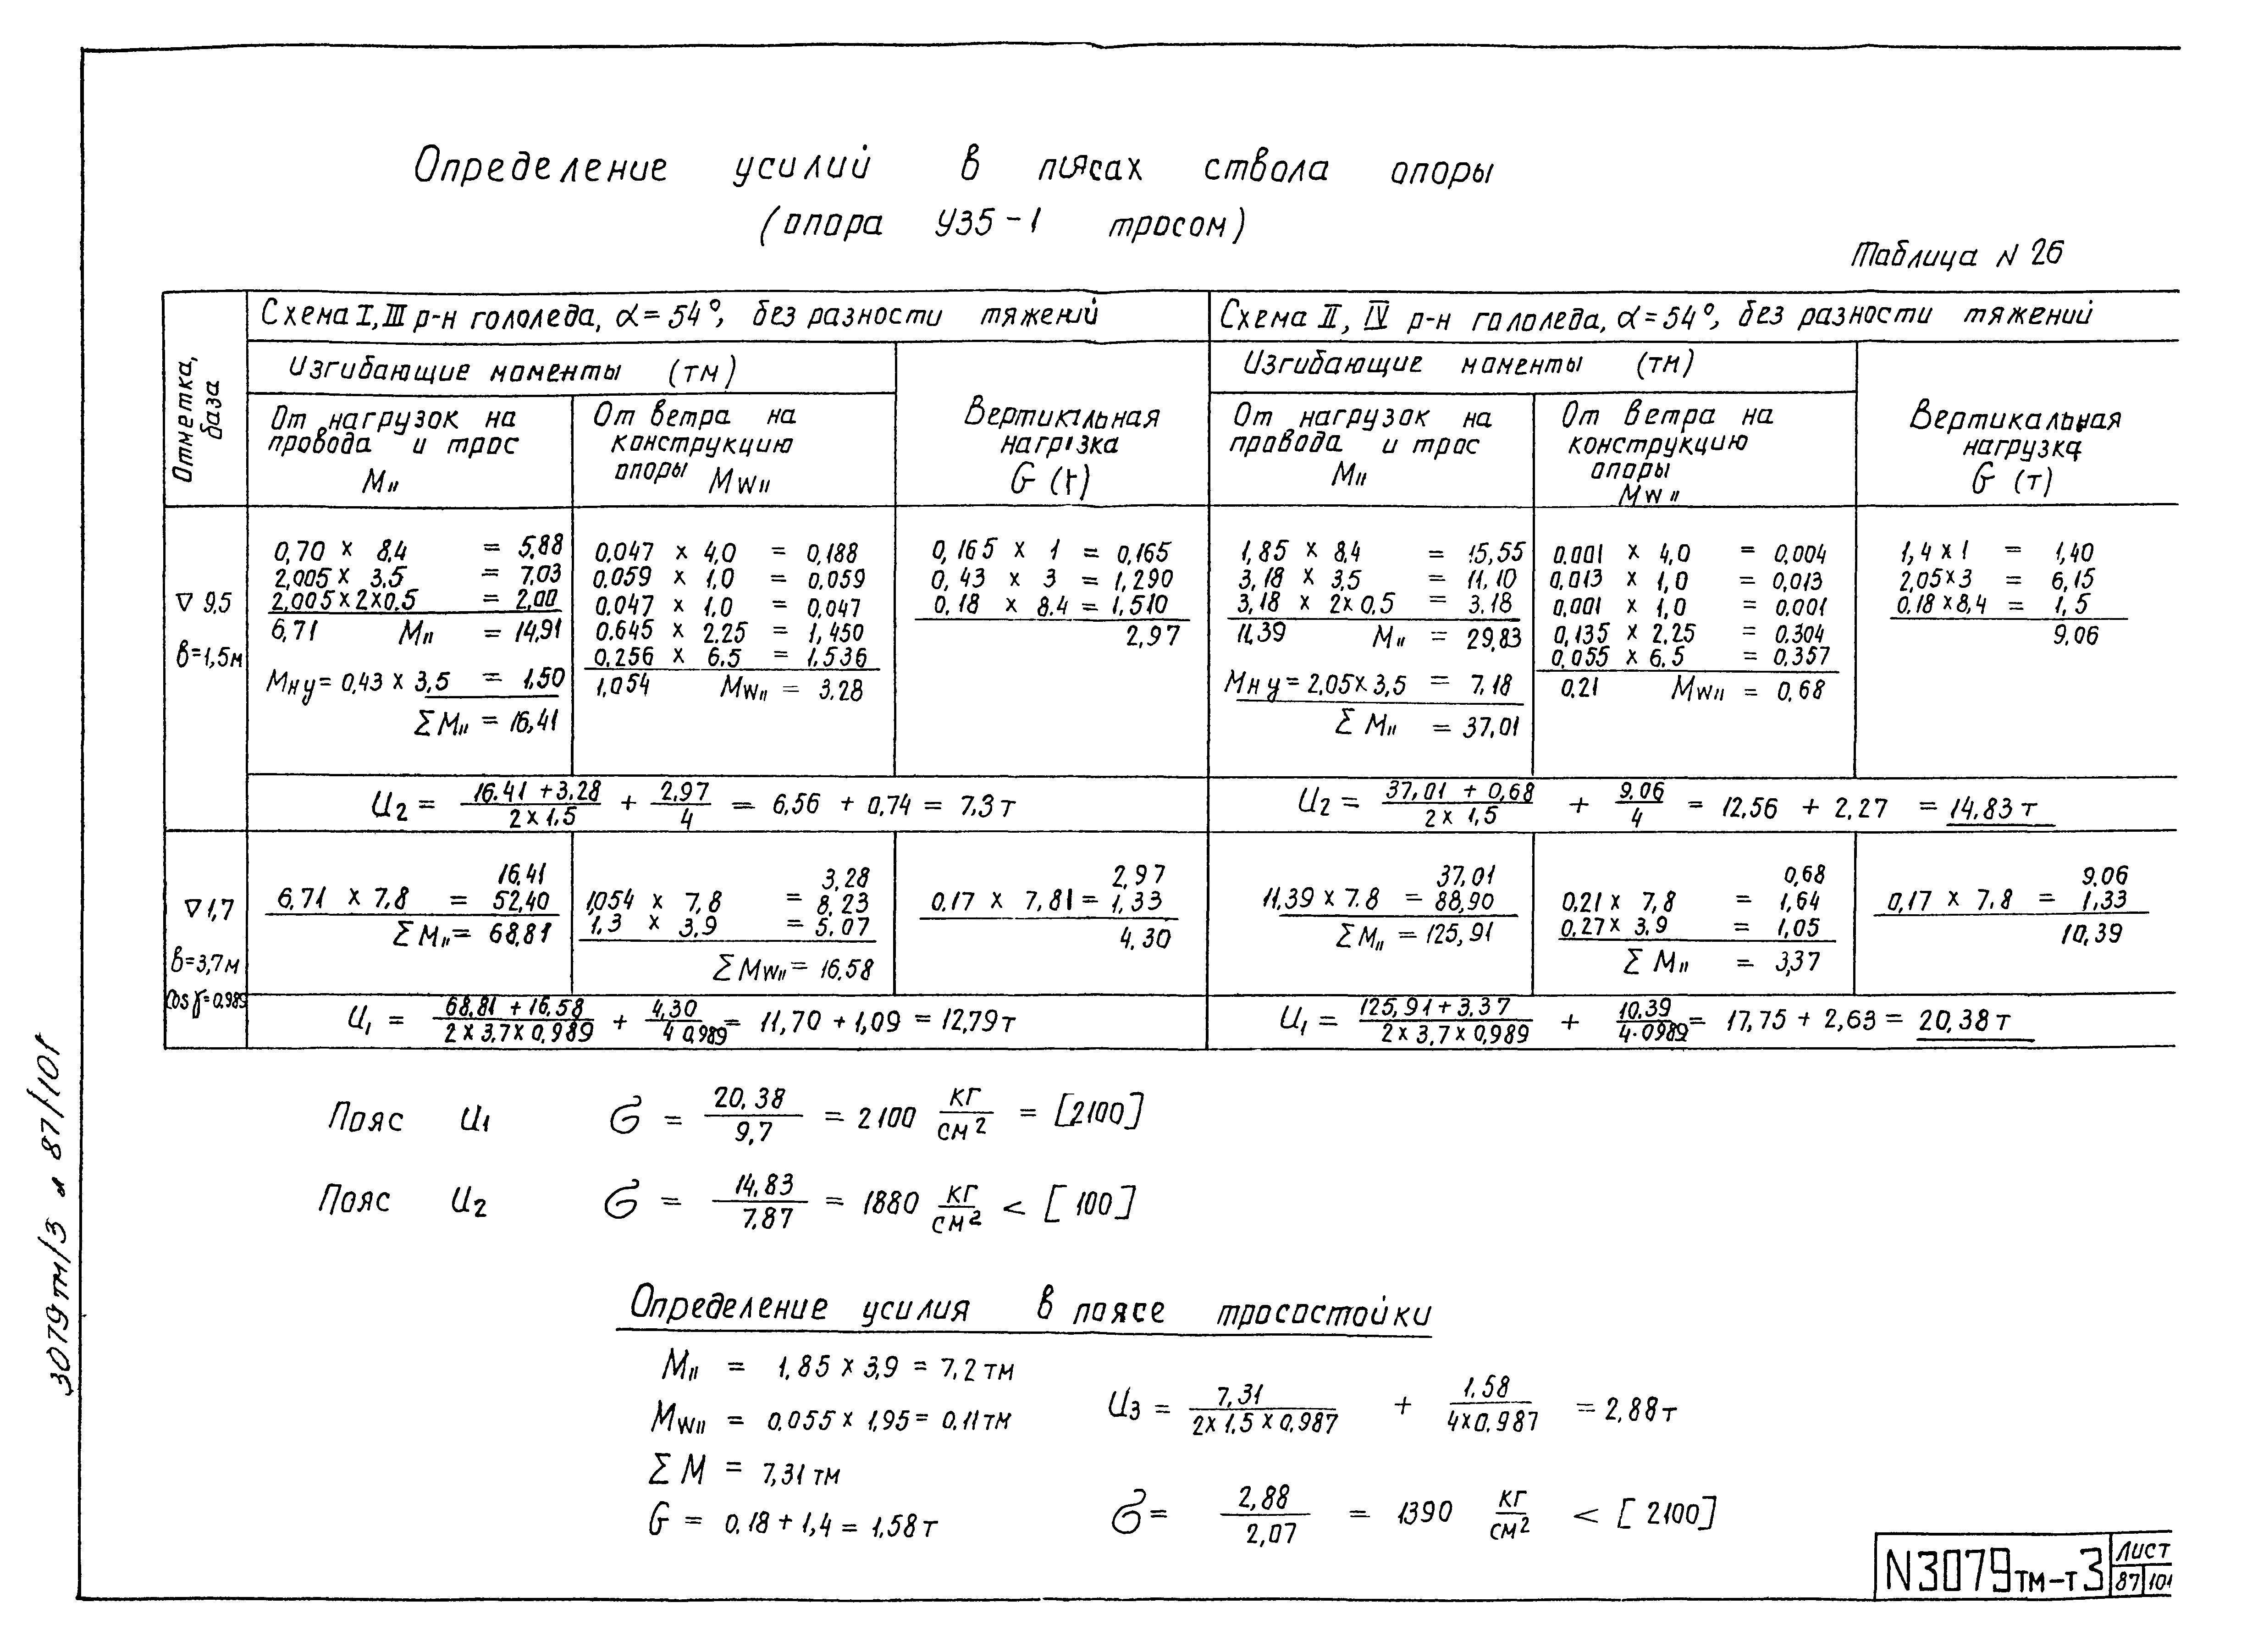 Определение усилий в поясах ствола опоры
(опора У35-1 тросом)
Таблица N 26
Отметка, база
Схема I, III р-н гололеда, α = 54°, без разности тяжений
Схема II, IV р-н гололеда, α = 54°, без разности тяжений
Изгибающие моменты (тм)
Изгибающие моменты (тм)
От нагрузок на
провода и трос
M II
От ветра на
конструкцию
опоры Mw II
Вертикальная
нагрузка
G (т)
От нагрузок на
провода и трос
M II
От ветра на
конструкцию
опоры
Mw II
Вертикальная
нагрузка
G (т)
▽ 9,5
в=1,5м
0,70 x 8,4 = 5,88
2,005 x 3,5 = 7,03
2,005x2x0.5 = 2,00
6,71 M II = 14,91
Mну = 0,43 x 3,5 = 1,50
Σ M II = 16,41
0,047 x 4,0 = 0,188
0.059 x 1,0 = 0,059
0.047 x 1.0 = 0,047
0.645 x 2.25 = 1,450
0,256 x 6.5 = 1,536
1,054 Mw II = 3.28
0,165 x 1 = 0,165
0,43 x 3 = 1,290
0,18 x 8.4 = 1,510
2,97
1,85 x 8,4 = 15,55
3,18 x 3,5 = 11,10
3,18 x 2x0,5 = 3,18
11,39 M II = 29,83
Mну = 2,05x3,5 = 7,18
Σ M II = 37,01
0.001 x 4,0 = 0,004
0,013 x 1,0 = 0,013
0,001 x 1,0 = 0.001
0,135 x 2,25 = 0.304
0,055 x 6.5 = 0,357
0,21 Mw II = 0,68
1,4 x 1 = 1,40
2,05x3 = 6,15
0,18x8,4 = 1,5
9,06
U2 = (16.41 + 3.28)/(2 x 1.5) + 2,97/4 = 6,56 + 0,74 = 7,3 т
U2 = (37,01 + 0,68)/(2 x 1,5) + 9,06/4 = 12,56 + 2,27 = 14,83 т
▽ 1,7
в=3,7м
Cos γ = 0,989
16,41
6,71 x 7,8 = 52,40
Σ M II = 68,81
3,28
1,054 x 7,8 = 8,23
1,3 x 3,9 = 5,07
Σ Mw II = 16,58
2,97
0,17 x 7,81 = 1,33
4,30
37,01
11,39 x 7.8 = 88,90
Σ M II = 125,91
0,68
0,21 x 7,8 = 1,64
0,27x 3,9 = 1,05
Σ M II = 3,37
9,06
0,17 x 7,8 = 1,33
10,39
U1 = (68,81 + 16,58)/(2 x 3,7 x 0,989) + 4,30/(4 0,989) = 11,70 + 1,09 = 12,79 т
U1 = (125,91 + 3,37)/(2 x 3,7 x 0,989) + 10,39/(4·0989) = 17,75 + 2,63 = 20,38 т
Пояс U1 σ = 20,38/9,7 = 2100 кг/см² = [2100]
Пояс U2 σ = 14,83/7.87 = 1880 кг/см² < [ 100]
Определение усилия в поясе тросостойки
M II = 1,85 x 3,9 = 7,2 тм
Mw II = 0,055 x 1,95 = 0,11 тм
Σ M = 7,31 тм
G = 0,18 + 1,4 = 1,58 т
U3 = 7,31/(2x 1,5 x 0,987) + 1.58/(4x0,987) = 2,88 т
σ = 2,88/2,07 = 1390 кг/см² < [2100]
3079тм/3 л 87/101
N3079тм-т3
Лист
87 101